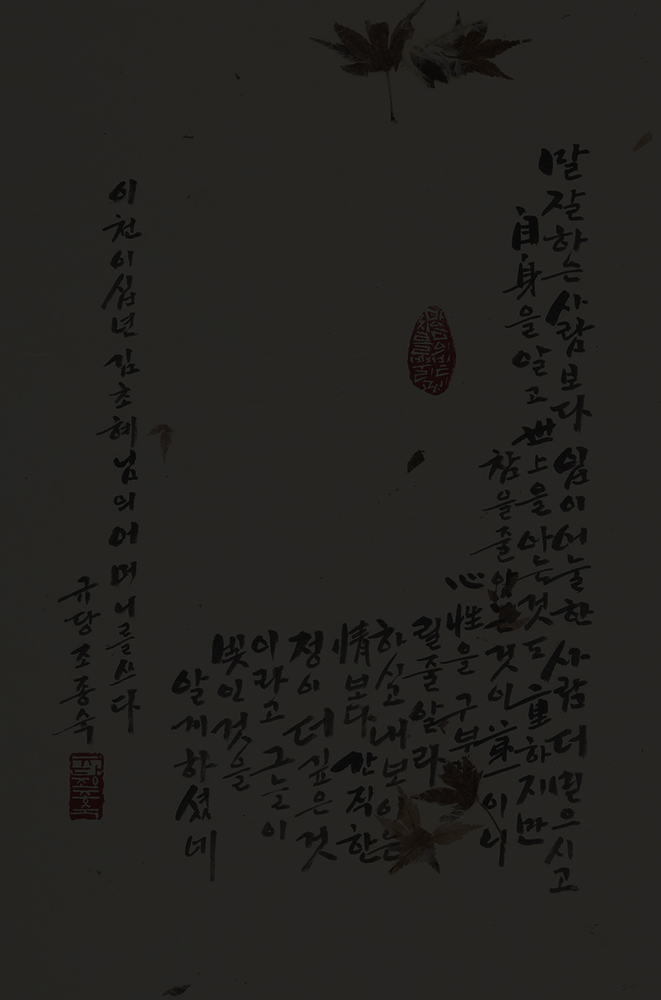 말 잘하는 사람보다 입이 어눌한 사람 더 믿으시고
自身을 알고 世上을 아는 것도 重하지만
참을 줄 앎는 것이 第一이니
心性을 구부
릴 줄 알라
하시고 내보이는
情보다 간직한
정이 더 깊은 것
이라고 그늘이
빛인 것을
알게 하셨네
이천이십년 김초혜님의 어머니를 쓰다
규당 조종숙